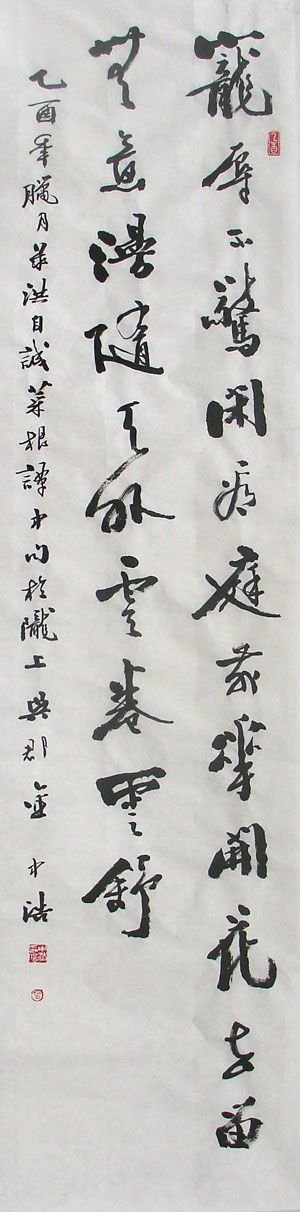 寵辱不驚閑看庭前華開花去留
無意漫隨天外雲卷雲舒
乙酉年臘月洪自誠菜根譚中句於隴上郡金中浩